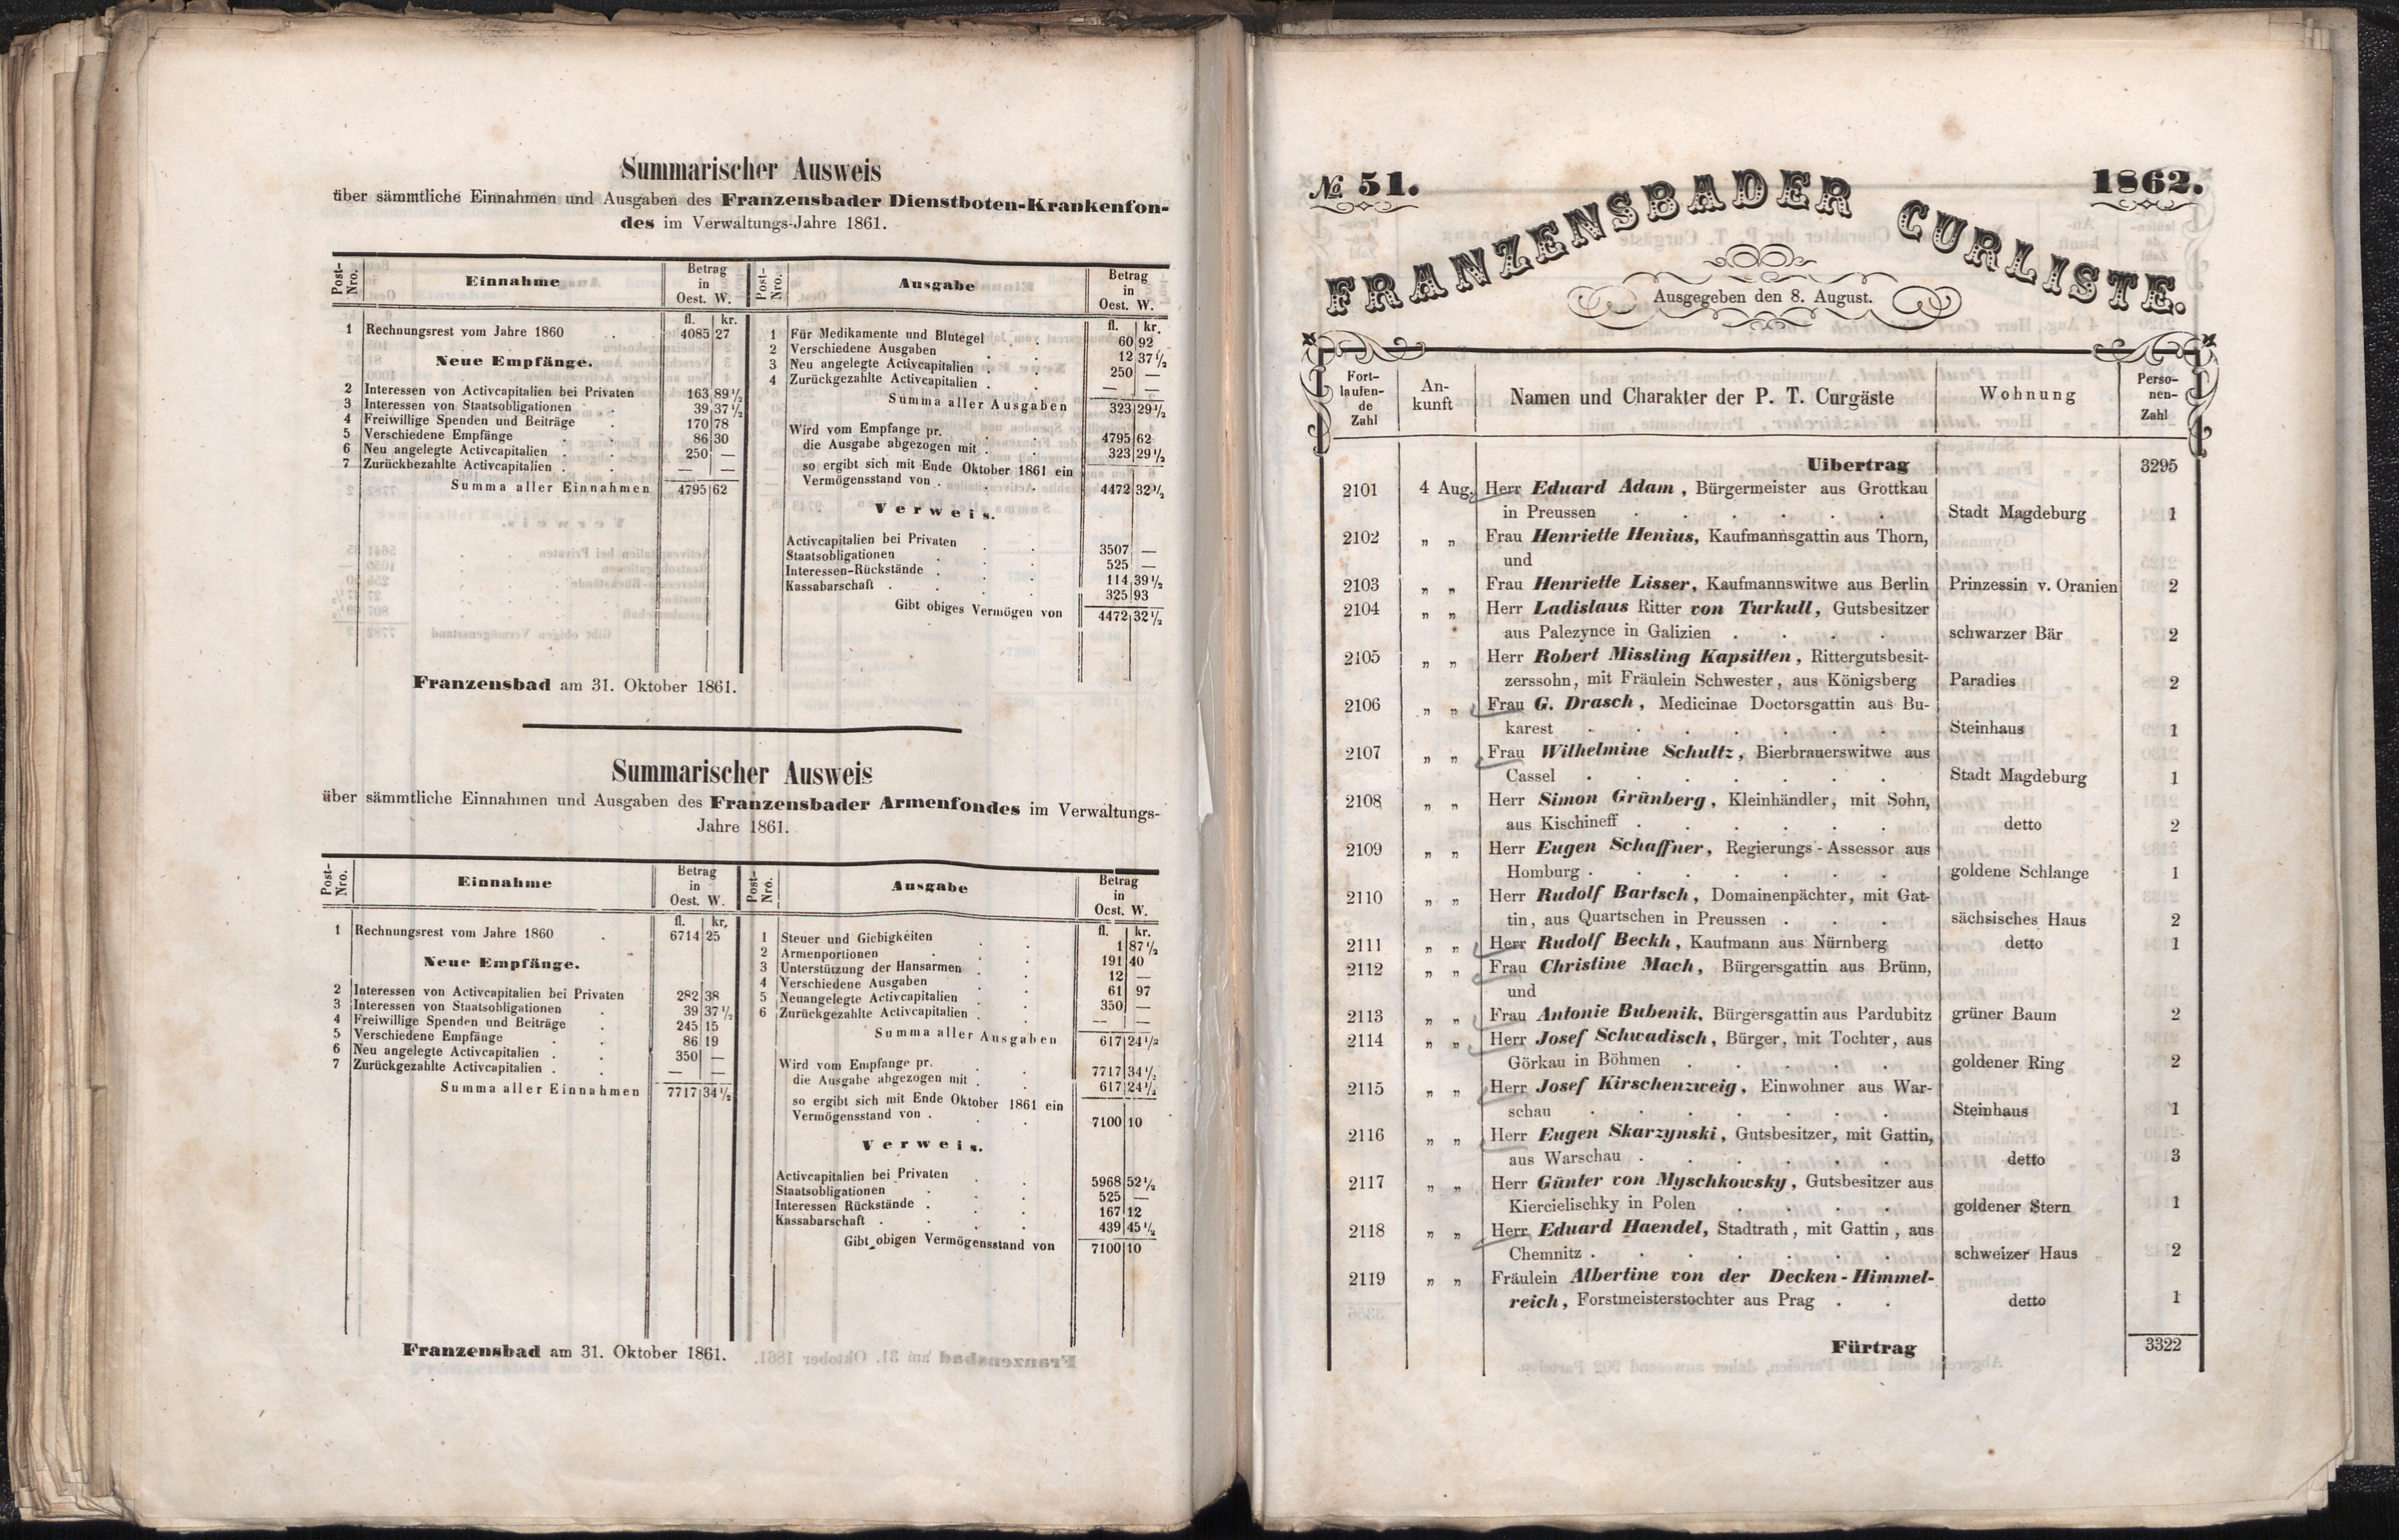 Summarischer Ausweis
über sämmtliche Einnahmen und Ausgaben des Franzensbader Dienstboten-Krankenfon-
des im Verwaltungs-Jahre 1861.
Post-Nro. Einnahme Betrag in Oest. W.
fl. kr.
1 Rechnungsrest vom Jahre 1860 . . 4085 27
Neue Empfänge.
2 Interessen von Activcapitalien bei Privaten 163 89½
3 Interessen von Staatsobligationen . 39 37½
4 Freiwillige Spenden und Beiträge . 170 78
5 Verschiedene Empfänge . . 86 30
6 Neu angelegte Activcapitalien . . 250 —
7 Zurückbezahlte Activcapitalien . . — —
Summa aller Einnahmen 4795 62
Post-Nro. Ausgabe Betrag in Oest. W.
fl. kr.
1 Für Medikamente und Blutegel . . 60 92
2 Verschiedene Ausgaben . . 12 37½
3 Neu angelegte Activcapitalien . . 250 —
4 Zurückgezahlte Activcapitalien . . — —
Summa aller Ausgaben 323 29½
Wird vom Empfange pr. . . 4795 62
die Ausgabe abgezogen mit . . 323 29½
so ergibt sich mit Ende Oktober 1861 ein
Vermögensstand von . . . 4472 32½
Verweis.
Activcapitalien bei Privaten . . 3507 —
Staatsobligationen . . 525 —
Interessen-Rückstände . . . 114 39½
Kassabarschaft . . . . 325 93
Gibt obiges Vermögen von 4472 32½
Franzensbad am 31. Oktober 1861.
Summarischer Ausweis
über sämmtliche Einnahmen und Ausgaben des Franzensbader Armenfondes im Verwaltungs-
Jahre 1861.
Post-Nro. Einnahme Betrag in Oest. W.
fl. kr.
1 Rechnungsrest vom Jahre 1860 . 6714 25
Neue Empfänge.
2 Interessen von Activcapitalien bei Privaten 282 38
3 Interessen von Staatsobligationen . 39 37½
4 Freiwillige Spenden und Beiträge . 245 15
5 Verschiedene Empfänge . . 86 19
6 Neu angelegte Activcapitalien . . 350 —
7 Zurückgezahlte Activcapitalien . . — —
Summa aller Einnahmen 7717 34½
Post-Nro. Ausgabe Betrag in Oest. W.
fl. kr.
1 Steuer und Giebigkeiten . . 1 87½
2 Armenportionen . . 191 40
3 Unterstützung der Hansarmen . . 12 —
4 Verschiedene Ausgaben . 61 97
5 Neuangelegte Activcapitalien . . 350 —
6 Zurückgezahlte Activcapitalien . . — —
Summa aller Ausgaben 617 24½
Wird vom Empfange pr. . . 7717 34½
die Ausgabe abgezogen mit . . 617 24½
so ergibt sich mit Ende Oktober 1861 ein
Vermögensstand von . . . 7100 10
Verweis.
Activcapitalien bei Privaten . . 5968 52½
Staatsobligationen . . 525 —
Interessen Rückstände . . . 167 12
Kassabarschaft . . . . 439 45½
Gibt obigen Vermögensstand von 7100 10
Franzensbad am 31. Oktober 1861.
№ 51. 1862.
FRANZENSBADER CURLISTE.
Ausgegeben den 8. August.
Fort-laufen-de Zahl An-kunft Namen und Charakter der P. T. Curgäste Wohnung Perso-nen-Zahl
Uibertrag 3295
2101 4 Aug. Herr Eduard Adam, Bürgermeister aus Grottkau
in Preussen . . . . . . Stadt Magdeburg 1
2102 „ „ Frau Henriette Henius, Kaufmannsgattin aus Thorn,
und
2103 „ „ Frau Henriette Lisser, Kaufmannswitwe aus Berlin Prinzessin v. Oranien 2
2104 „ „ Herr Ladislaus Ritter von Turkull, Gutsbesitzer
aus Palezynce in Galizien . . . . schwarzer Bär 2
2105 „ „ Herr Robert Missling Kapsitten, Rittergutsbesit-
zerssohn, mit Fräulein Schwester, aus Königsberg Paradies 2
2106 „ „ Frau G. Drasch, Medicinae Doctorsgattin aus Bu-
karest . . . . . . . Steinhaus 1
2107 „ „ Frau Wilhelmine Schultz, Bierbrauerswitwe aus
Cassel . . . . . . . Stadt Magdeburg 1
2108 „ „ Herr Simon Grünberg, Kleinhändler, mit Sohn,
aus Kischineff . . . . . . detto 2
2109 „ „ Herr Eugen Schaffner, Regierungs-Assessor aus
Homburg . . . . . . . goldene Schlange 1
2110 „ „ Herr Rudolf Bartsch, Domainenpächter, mit Gat-
tin, aus Quartschen in Preussen . . . sächsisches Haus 2
2111 „ „ Herr Rudolf Beckh, Kaufmann aus Nürnberg detto 1
2112 „ „ Frau Christine Mach, Bürgersgattin aus Brünn,
und
2113 „ „ Frau Antonie Bubenik, Bürgersgattin aus Pardubitz grüner Baum 2
2114 „ „ Herr Josef Schwadisch, Bürger, mit Tochter, aus
Görkau in Böhmen . . . . . goldener Ring 2
2115 „ „ Herr Josef Kirschenzweig, Einwohner aus War-
schau . . . . . . . Steinhaus 1
2116 „ „ Herr Eugen Skarzynski, Gutsbesitzer, mit Gattin,
aus Warschau . . . . . . detto 3
2117 „ „ Herr Günter von Myschkowsky, Gutsbesitzer aus
Kiercielischky in Polen . . . . goldener Stern 1
2118 „ „ Herr Eduard Haendel, Stadtrath, mit Gattin, aus
Chemnitz . . . . . . . schweizer Haus 2
2119 „ „ Fräulein Albertine von der Decken-Himmel-
reich, Forstmeisterstochter aus Prag . . detto 1
Fürtrag 3322